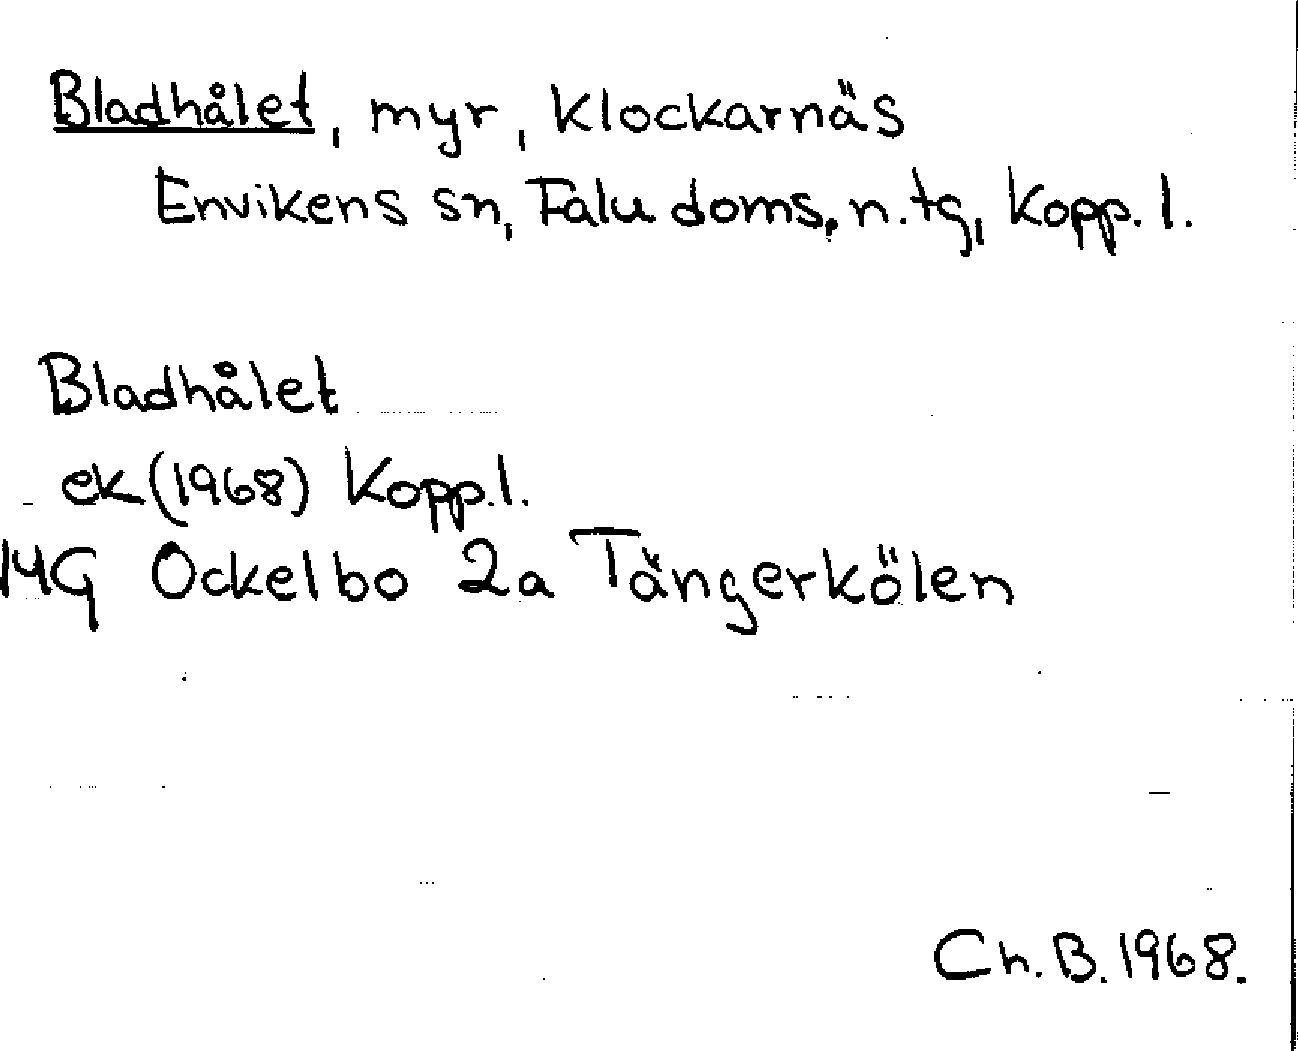 Bladhålet, myr, Klockarnäs
Envikens sn, Falu doms. n. tg, Kopp. l.
Bladhålet
ek (1968) Kopp. l.
14G Ockelbo 2a Tångerkölen
Ch. B. 1968.